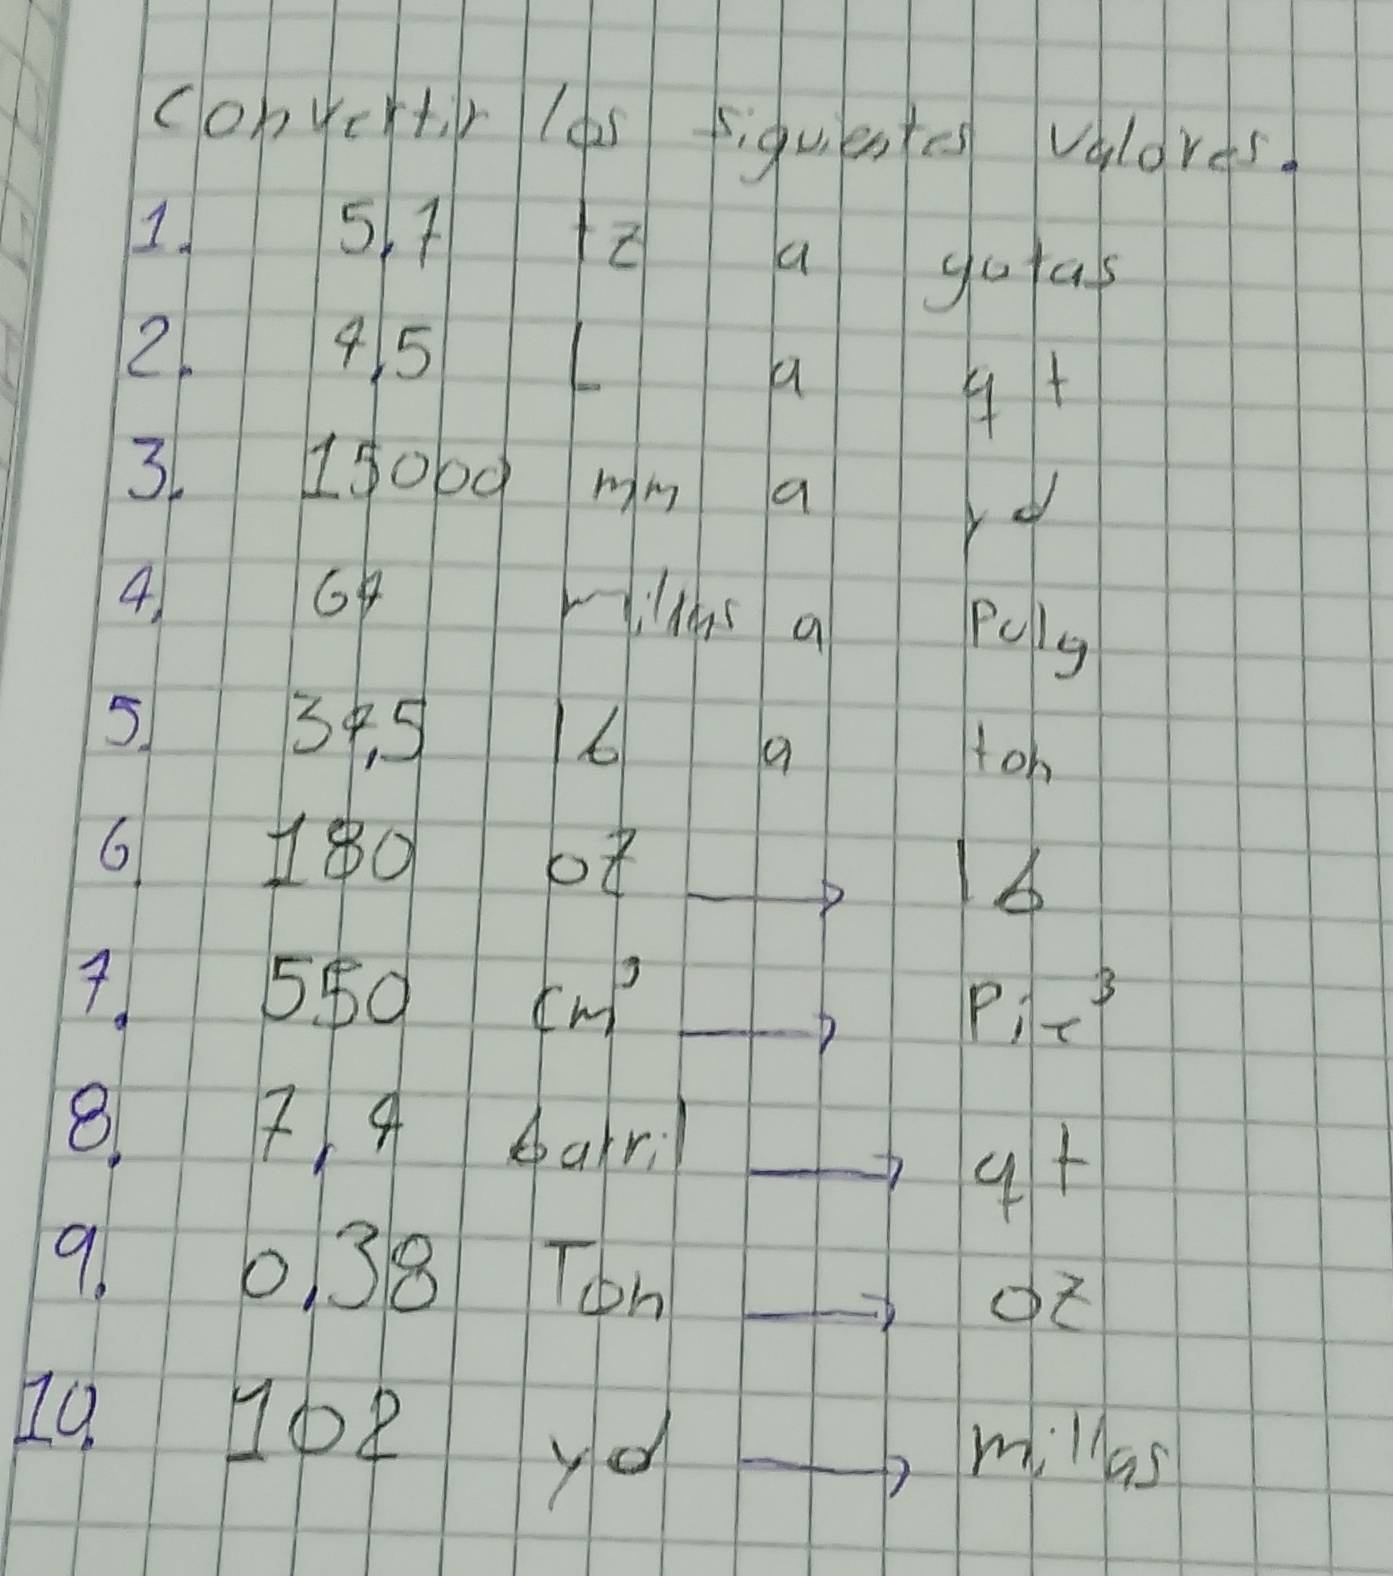 Convertir los siguientes valores.
1. 5,7 tz a gotas
2. 4,5 L a qt
3. 15000 mm a yd
4. 64 millas a Pulg
5. 34,5 lb a ton
6. 180 oz → lb
7. 550 cm³ → Pie³
8. 7,4 barril → qt
9. 0,38 Ton → oz
10. 102 yd → millas